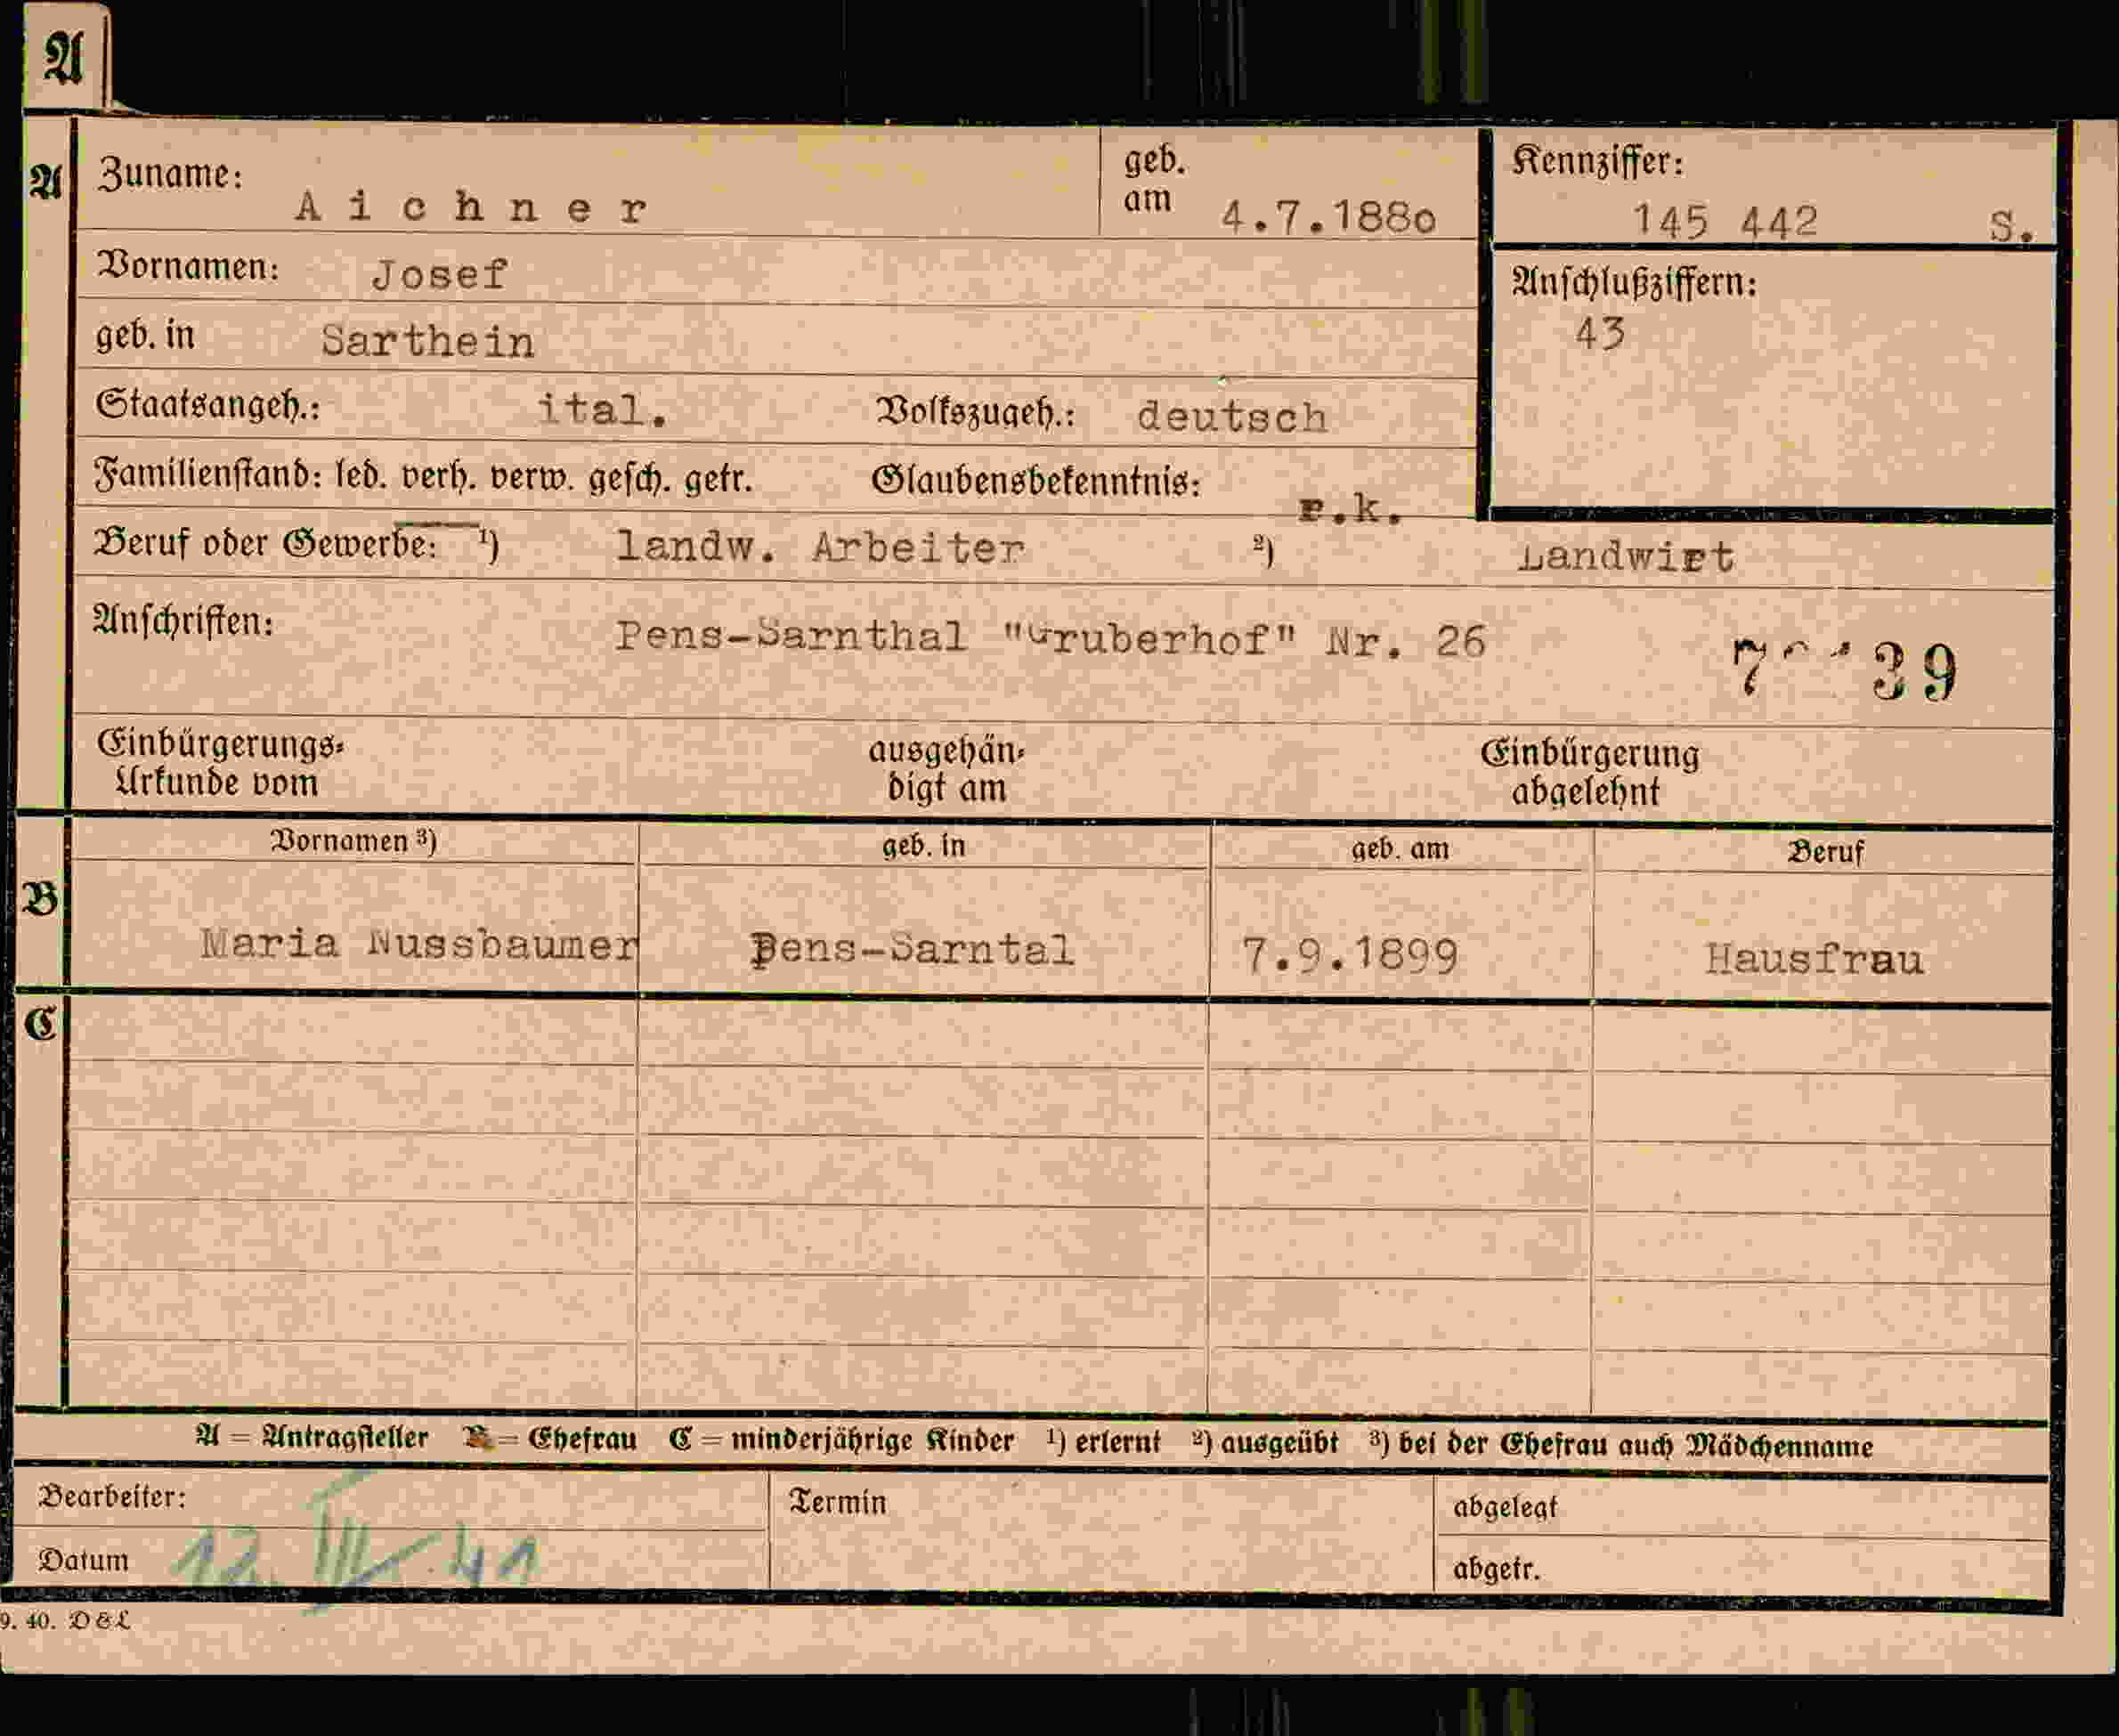 A
A
Zuname: Aichner
geb. am 4.7.1880
Kennziffer: 145 442 S.
Vornamen: Josef
Anschlußziffern: 43
geb. in Sarthein
Staatsangeh.: ital. Volkszugeh.: deutsch
Familienstand: led. verh. verw. gesch. getr. Glaubensbekenntnis: r.k.
Beruf oder Gewerbe: ¹) landw. Arbeiter ²) Landwirt
Anschriften: Pens-Sarnthal "Gruberhof" Nr. 26
39
Einbürgerungs-Urkunde vom ausgehändigt am Einbürgerung abgelehnt
Vornamen ³) geb. in geb. am Beruf
B
Maria Nussbaumer Pens-Sarntal 7.9.1899 Hausfrau
C
A = Antragsteller B = Ehefrau C = minderjährige Kinder ¹) erlernt ²) ausgeübt ³) bei der Ehefrau auch Mädchenname
Bearbeiter: Termin abgelegt
Datum 12. III. 41 abgetr.
9. 40. D & L